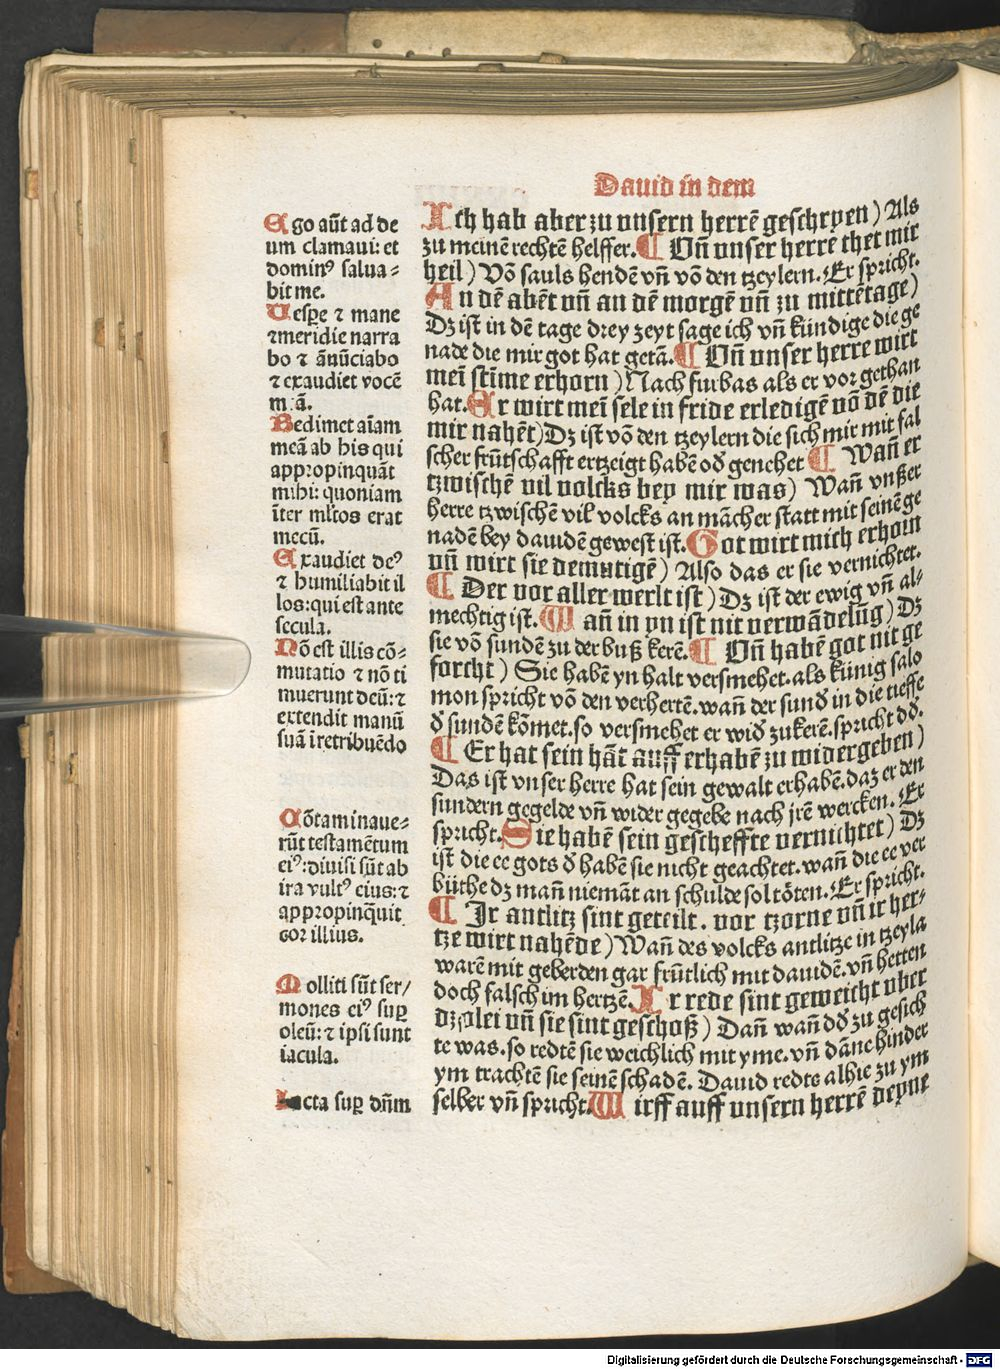 Dauid in dem
Ego aūt ad de
um clamaui: et
dominꝰ salua-
bit me.
Uesp̄e ⁊ mane
⁊meridie narra
bo ⁊ ānūciabo
⁊ exaudiet vocē
m.ā.
Redimet aīam
meā ab his qui
appropinquāt
mihi: quoniam
īter ml̄tos erat
mecū.
Exaudiet deꝰ
⁊ humiliabit il
los: qui est ante
secula.
Nō est illis cō-
mutatio ⁊ nō ti
muerunt deū: ⁊
extendit manū
suā ī retribuēdo
Cōtaminaue-
rūt testamētum
eiꝰ: diuisi sūt ab
ira vultꝰ eius: ⁊
appropinq̄uit
cor illius.
Molliti sūt ser/
mones eiꝰ suꝑ
oleū: ⁊ ipsi sunt
iacula.
Iacta suꝑ dn̄m
Ich hab aber zu vnsern herrē geschryen) Als
zu meinē rechtē helffer. ¶ Vn̄ vnser herre thet mir
heil) Vō sauls hendē vn̄ vō den tzeylern. Er spricht.
An dē abēt vn̄ an dē morgē vn̄ zu mittētage)
Dz ist in dē tage drey zeyt sage ich vn̄ kündige die ge
nade die mir got hat getā. ¶ Vn̄ vnser herre wirt
mei stīme erhorn) Nach furbas als er vor gethan
hat. Er wirt mei sele in fride erledigē vō dē die
mir nahēt) Dz ist vō den tzeylern die sich mir mit fal
scher frūtschafft ertzeigt habē od̄ genehet ¶ Wan̄ er
tzwischē vil volcks bey mir was) Wan̄ vnßer
herre tzwischē vil volcks an mācher statt mit seinē ge
nadē bey dauidē gewest ist. Got wirt mich erhorn
vn̄ wirt sie demutigē) Also das er sie vernichtet.
¶ Der vor aller werlt ist) Dz ist der ewig vn̄ al-
mechtig ist. Wan̄ in yn ist nit verwādelūg) Dz
sie vō sundē zu der buß kerē. ¶ Vn̄ habē got nit ge
forcht) Sie habē yn halt versmehet. als künig salo
mon spricht vō den verhertē. wan̄ der sund̄ in die tieffe
d̄ sundē kōmet. so versmehet er wid̄ zukerē. spricht dd̄.
¶ Er hat sein hāt auff erhabē zu widergeben)
Das ist vnser herre hat sein gewalt erhabē. daz er den
sundern gegelde vn̄ wider gegebe nach jrē wercken. Er
spricht. Sie habē sein gescheffte vernichtet) Dz
ist die ee gots d̄ habē sie nicht geachtet. wan̄ die ee ver
büthe dz man̄ niemāt an schulde sol tōten. Er spricht.
¶ Ir antlitz sint geteilt. vor tzorne vn̄ ir her-
tze wirt nahēde) Wan̄ des volcks antlitze in tzeyla
warē mit geberden gar frūtlich mit dauidē. vn̄ hetten
doch falsch im hertzē. Ir rede sint geweicht vber
dz olei vn̄ sie sint geschoß) Dan̄ wan̄ dd̄ zu gesich
te was. so redtē sie weichlich mit yme. vn̄ dāne hinder
ym trachtē sie seinē schadē. Dauid redte alhie zu ym
selber vn̄ spricht. Wirff auff vnsern herrē deyne
Digitalisierung gefördert durch die Deutsche Forschungsgemeinschaft - DFG